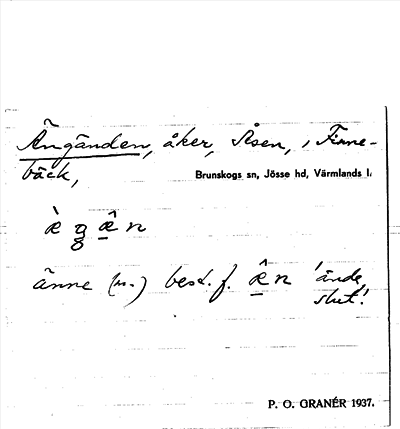 Ängänden, åker, Åsen, i Finne-
bäck,
Brunskogs sn, Jösse hd, Värmlands l.
änne (m.) best. f. æ̂n 'ände,
slut'.
P. O. GRANÉR 1937.